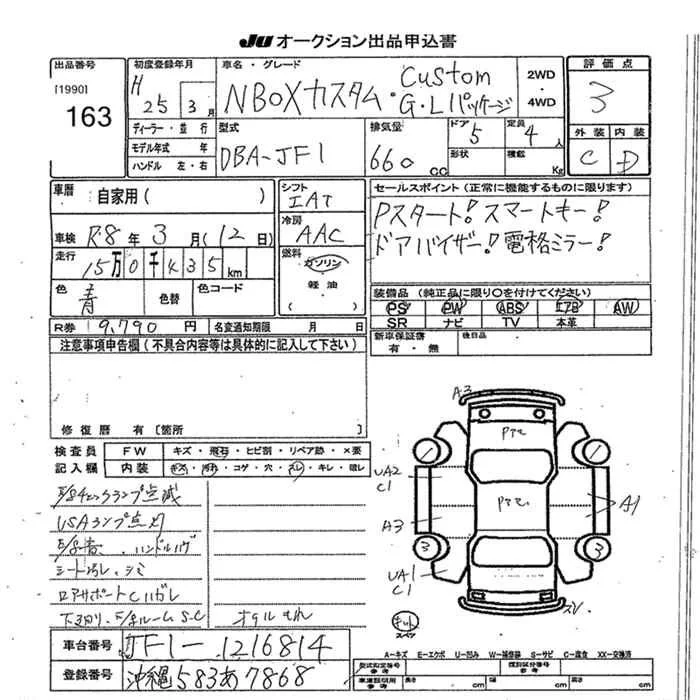 JU オークション出品申込書
出品番号
[1990]
163
初度登録年月
H 25年 3月
車名・グレード
NBOXカスタム・Custom G・Lパッケージ
2WD
4WD
評価点
3
外装 内装
C D
ディーラー・並行
モデル年式 年
ハンドル 左・右
型式
DBA-JF1
排気量
660 cc
ドア
5
形状
定員
4人
積載
Kg
車歴
自家用 ( )
車検
R8年 3月 (12日)
走行
15万0千435 km
色
青
色替
色コード
シフト
IAT
冷房
AAC
燃料
ガソリン
軽油
( )
セールスポイント (正常に機能するものに限ります)
Pスタート! スマートキー!
ドアバイザー! 電格ミラー!
装備品 (純正品に限り○を付けてください)
PS PW ABS エアB AW
SR ナビ TV 本革
R券 9,790 円
名変通知期限 月 日
新車保証書
有・無
後日品
注意事項申告欄 (不具合内容等は具体的に記入して下さい)
修復歴 有 [箇所 ]
検査員
記入欄
FW キズ・飛石・ヒビ割・リペア跡・×要
内装 キズ・汚れ・コゲ・穴・スレ・キレ・眼レ
ランプ点滅
ランプ点灯
ハンドルハゲ
シート汚レ、シミ
ロアサポートCハガレ
オイルもれ
車台番号
JF1-1216814
登録番号
沖縄583あ7868
A3
UA2
C1
A3
UA1
C1
A1
3
3
スペア
A-キズ E-エクボ U-凹み W-補修跡 S-サビ C-腐食 XX-交換済
型式指定番号
参考
類別区分番号
参考
車庫証明用
参考
長さ cm
幅 cm
高さ cm